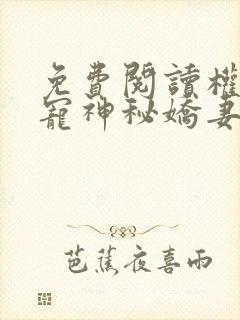 免費閱讀權
寵神秘嬌妻
芭蕉夜喜雨